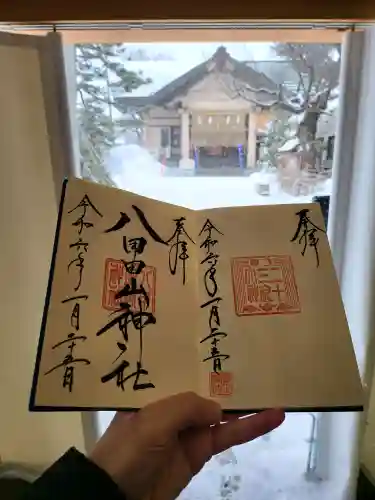 奉拝
八甲田山神社
令和六年一月二十五日
奉拝
令和六年一月二十五日